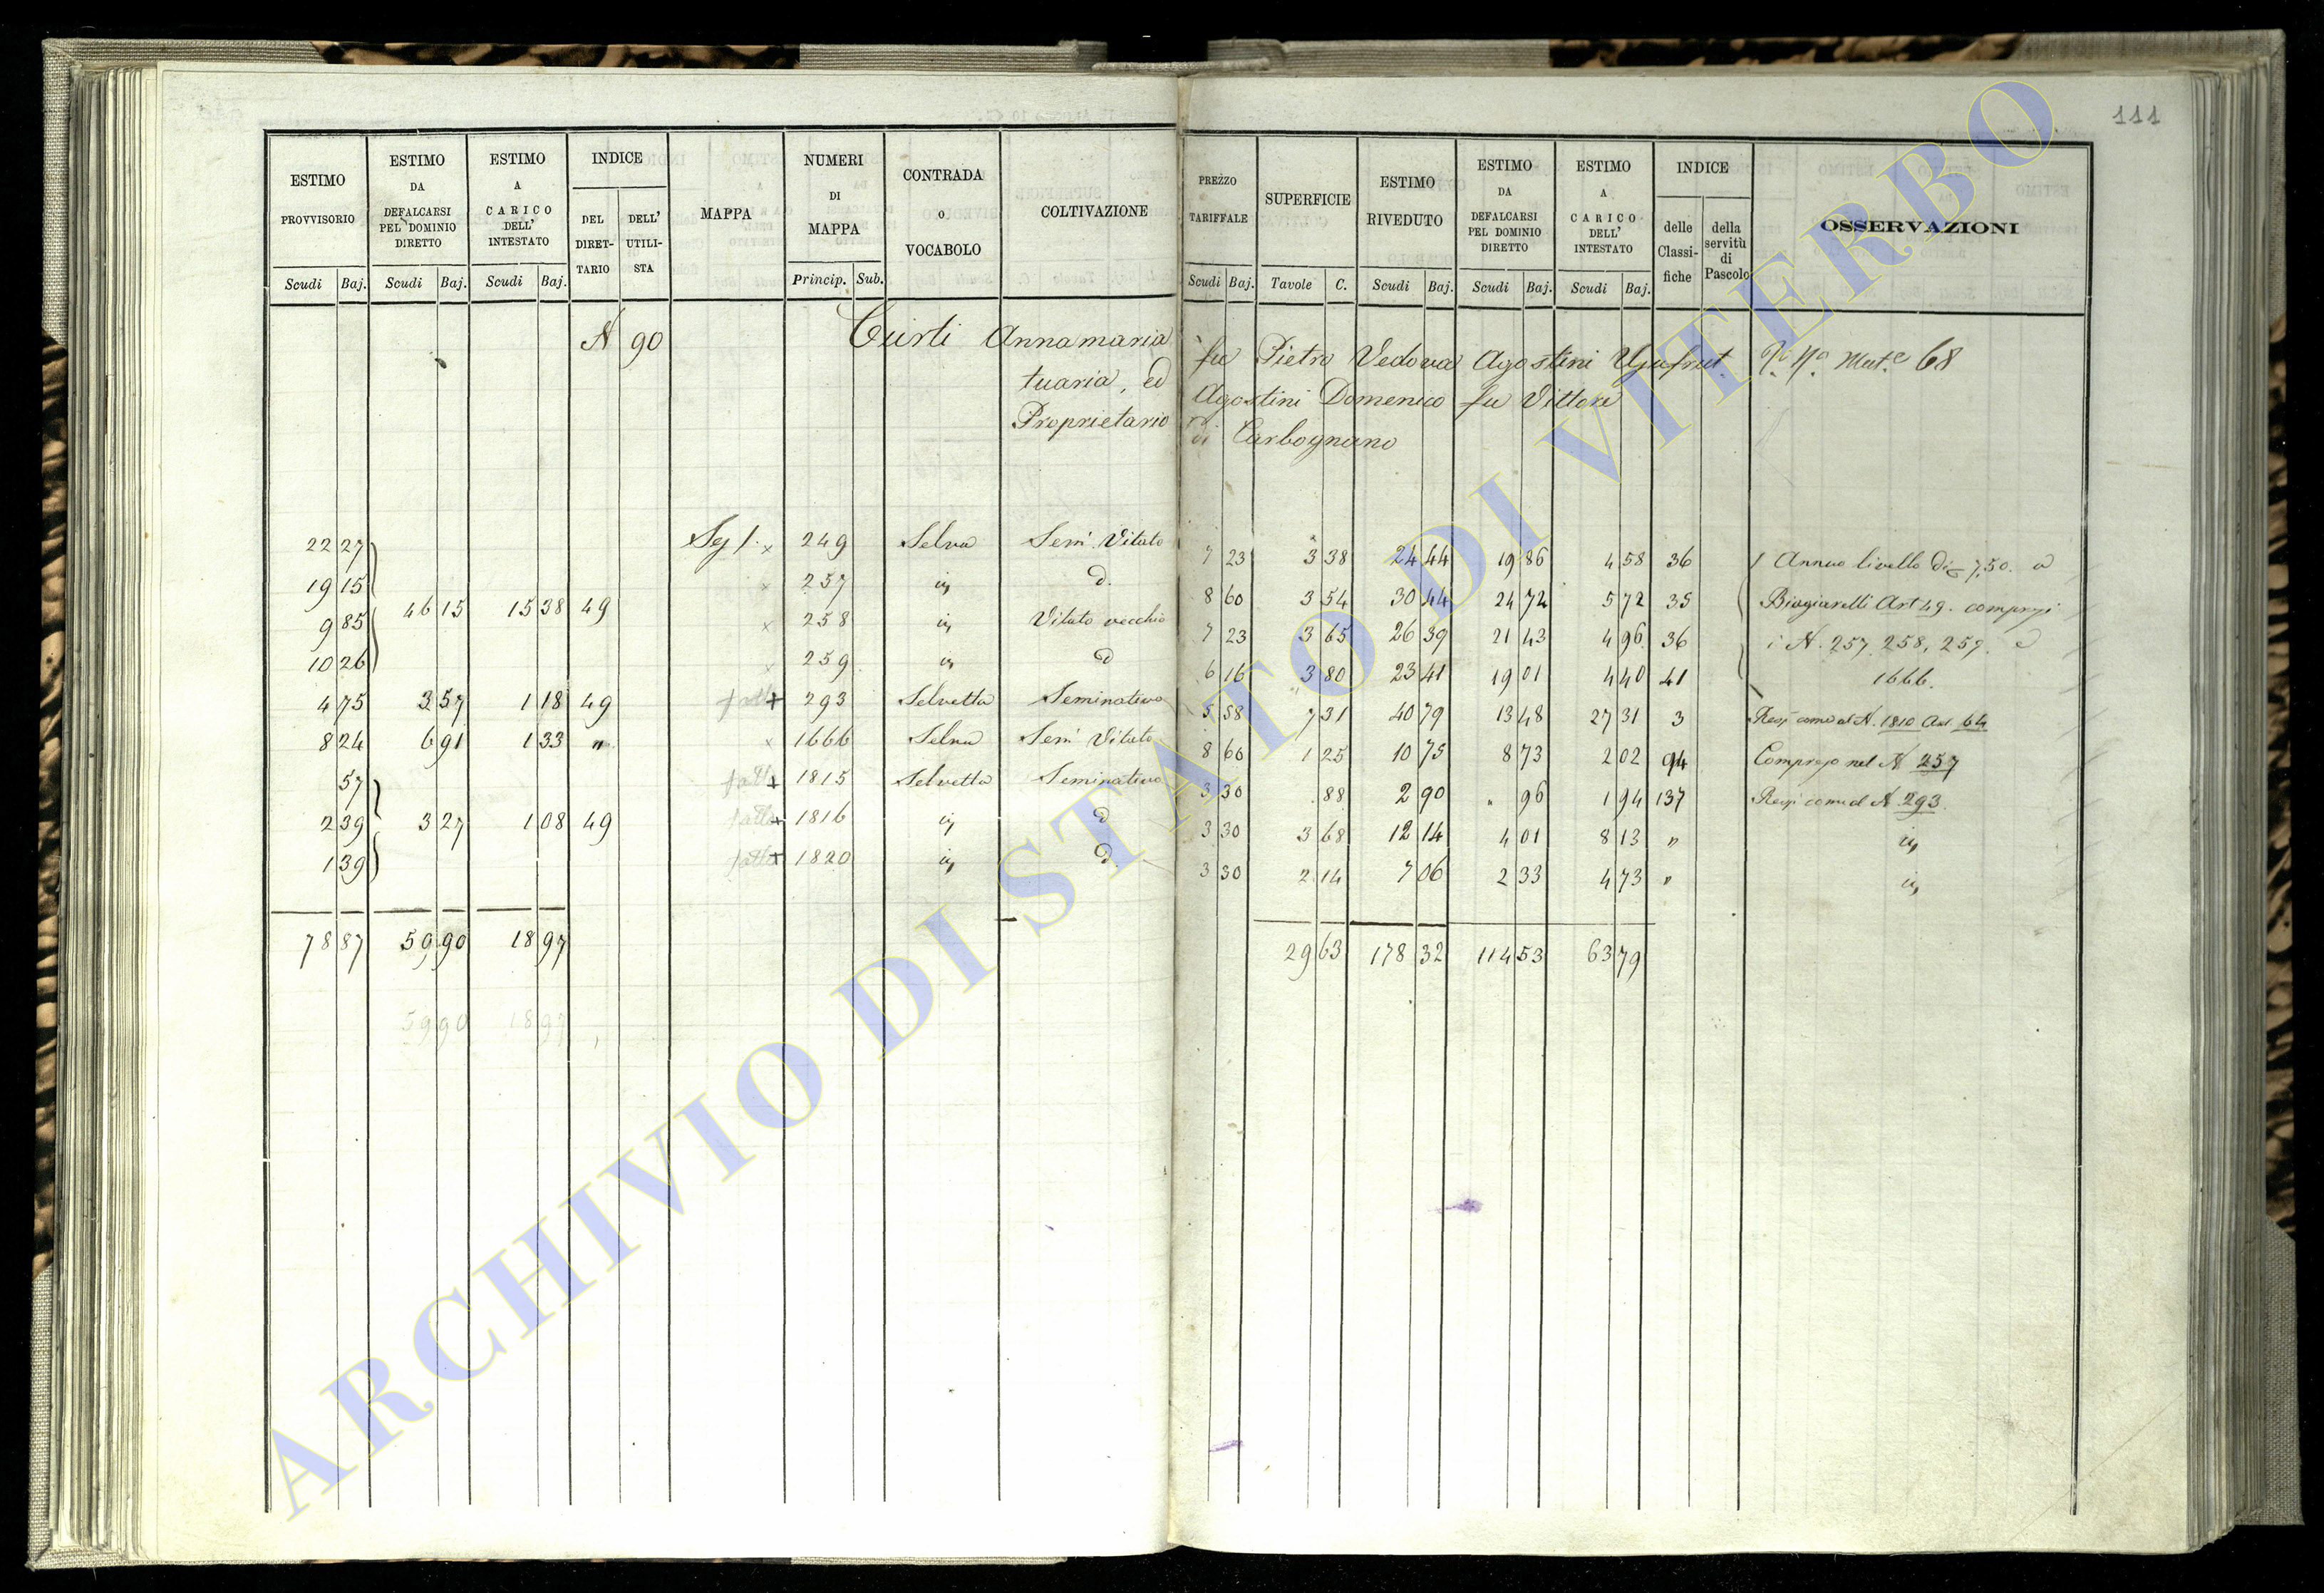 111
ESTIMO PROVVISORIO | ESTIMO DA DEFALCARSI PEL DOMINIO DIRETTO | ESTIMO A CARICO DELL' INTESTATO | INDICE | MAPPA | NUMERI DI MAPPA | CONTRADA O VOCABOLO | COLTIVAZIONE | PREZZO TARIFFALE | SUPERFICIE | ESTIMO RIVEDUTO | ESTIMO DA DEFALCARSI PEL DOMINIO DIRETTO | ESTIMO A CARICO DELL' INTESTATO | INDICE | OSSERVAZIONI
DEL DIRETTARIO | DELL' UTILISTA | delle Classifiche | della servitù di Pascolo
Scudi | Baj. | Scudi | Baj. | Scudi | Baj. | Princip. | Sub. | Scudi | Baj. | Tavole | C. | Scudi | Baj. | Scudi | Baj. | Scudi | Baj.
N 90 Annamaria fu Pietro Vedova Agostini Usufrut Mut.e 68
tuaria, ed Agostini Domenico fu Vittore
Proprietario di Carbognano
22 27 | 249 | Selva | Sem Vitato | 7 23 | 3 38 | 24 44 | 19 86 | 4 58 | 36 | Annuo livello di 7,50. a
19 15 | 257 | d. | 8 60 | 3 54 | 30 44 | 24 72 | 5 72 | 35 | Biagiarelli Art 49. compresi
9 85 | 46 15 | 15 38 | 49 | 258 | Vitato vecchio | 7 23 | 3 65 | 26 39 | 21 43 | 4 96 | 36 | i N. 257, 258, 259. e
10 26 | 259 | d | 6 16 | 3 80 | 23 41 | 19 01 | 4 40 | 41 | 1666.
4 75 | 3 57 | 1 18 | 49 | fatto + | 293 | Selvetta | Seminativo | 5 58 | 7 31 | 40 79 | 13 48 | 27 31 | 3 | come al N. 1810 Art. 64
8 24 | 6 91 | 1 33 | " | 1666 | Selva | Sem Vitato | 8 60 | 1 25 | 10 75 | 8 73 | 2 02 | 94 | Compreso nel N 257
57 | fatto + | 1815 | Selvetta | Seminativo | 3 30 | . 88 | 2 90 | " 96 | 1 94 | 137 | come al N 293.
2 39 | 3 27 | 1 08 | 49 | fatto + | 1816 | d | 3 30 | 3 68 | 12 14 | 4 01 | 8 13 | "
1 39 | fatto + | 1820 | d. | 3 30 | 2 14 | 7 06 | 2 33 | 4 73 | "
78 87 | 59 90 | 18 97 | 29 63 | 178 32 | 114 53 | 63 79
59 90 | 18 97
ARCHIVIO DI STATO DI VITERBO